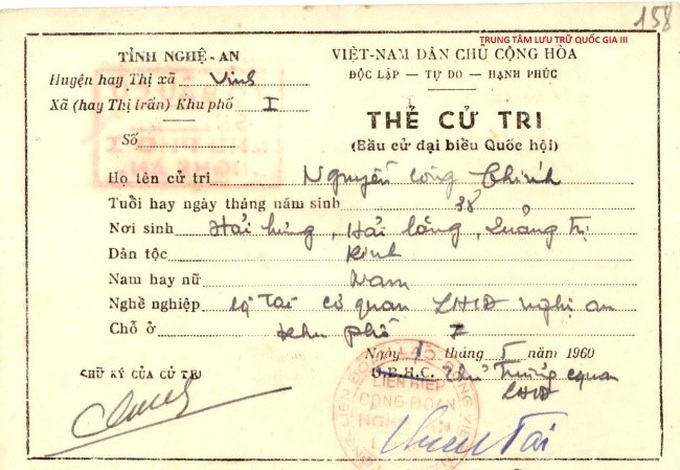 158
TRUNG TÂM LƯU TRỮ QUỐC GIA III
TỈNH NGHỆ-AN
Huyện hay Thị xã Vinh
Xã (hay Thị trấn) Khu phố I
Số
VIỆT-NAM DÂN CHỦ CỘNG HÒA
ĐỘC LẬP — TỰ DO — HẠNH PHÚC
THẺ CỬ TRI
(Bầu cử đại biểu Quốc hội)
Họ tên cử tri Nguyễn Công Chính
Tuổi hay ngày tháng năm sinh 38
Nơi sinh Hải hưng, Hải lăng, Quảng trị
Dân tộc Kinh
Nam hay nữ Nam
Nghề nghiệp cơ quan LHCĐ nghệ an
Chỗ ở Khu phố I
Ngày 1 tháng 5 năm 1960
U.B.H.C. Thủ Trưởng cquan
LHCĐ
CHỮ KÝ CỦA CỬ TRI
LIÊN HIỆP
CÔNG ĐOÀN
NGHỆ AN